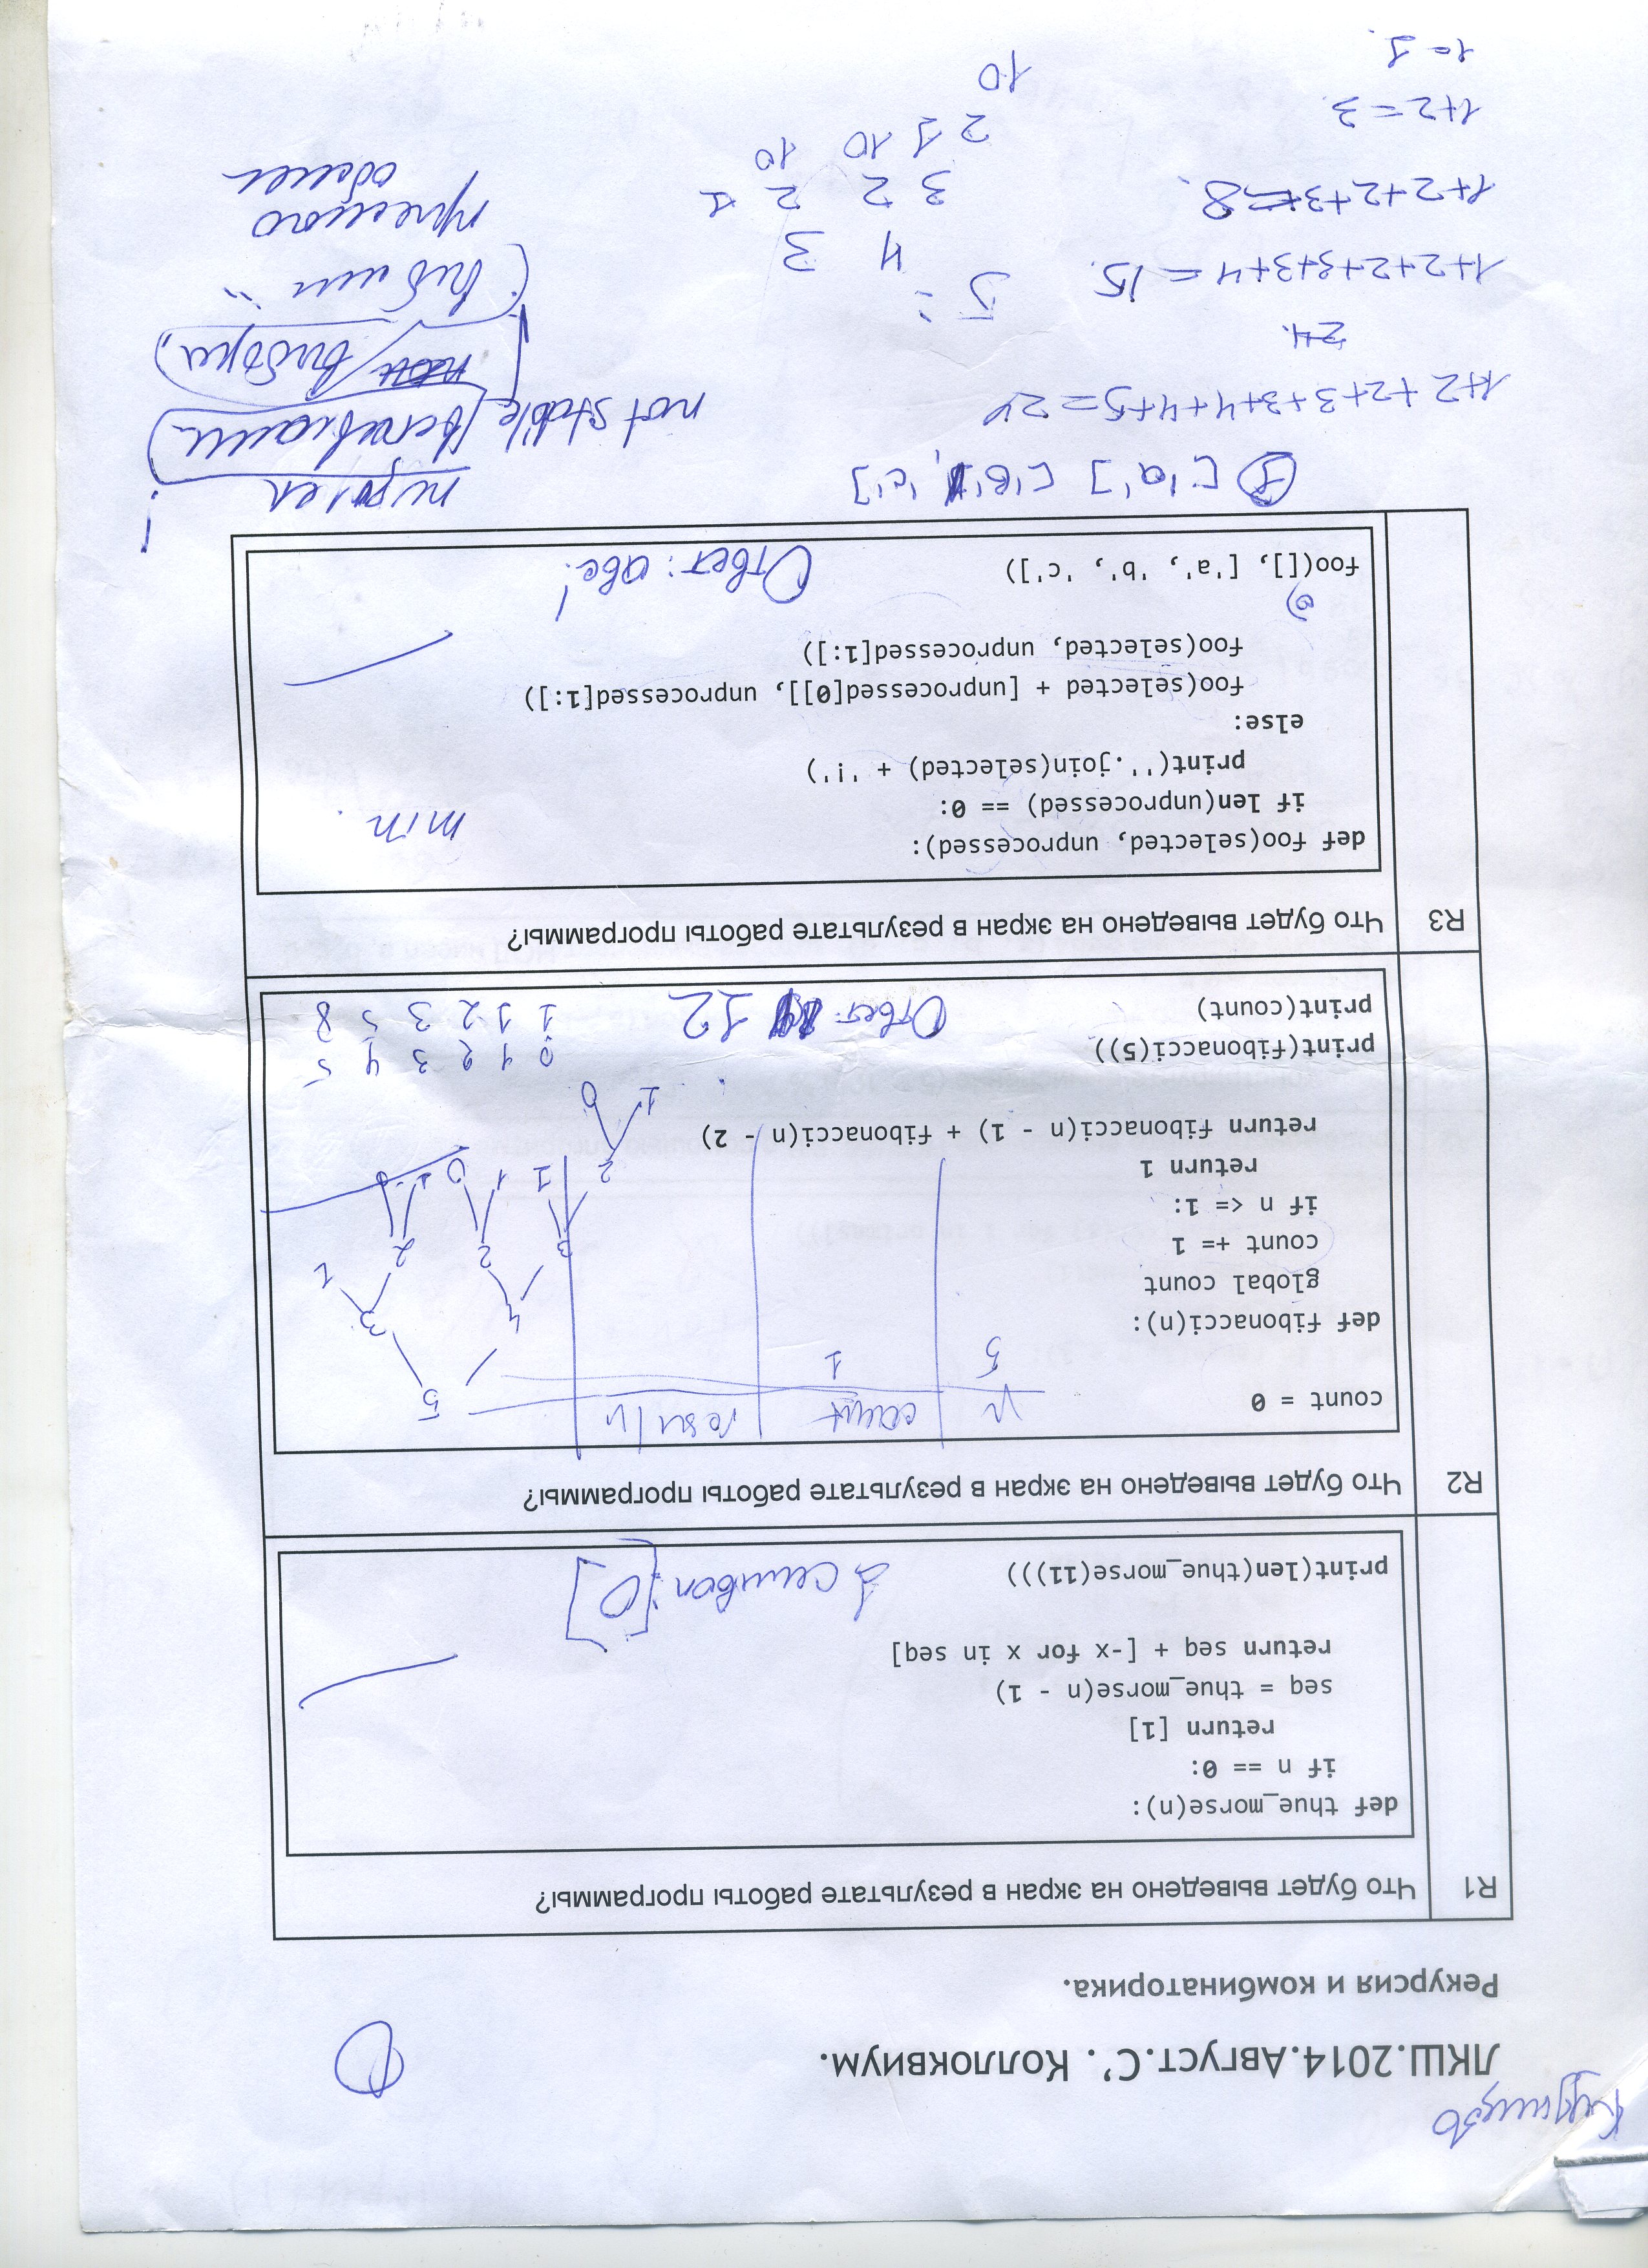 ЛКШ.2014.Август.С'. Коллоквиум.
Рекурсия и комбинаторика.
R1 Что будет выведено на экран в результате работы программы?
def thue_morse(n):
if n == 0:
return [1]
seq = thue_morse(n - 1)
return seq + [-x for x in seq]
print(len(thue_morse(11)))
1 символ: [0]
R2 Что будет выведено на экран в результате работы программы?
count = 0
n count
5 1
def fibonacci(n):
global count
count += 1
if n <= 1:
return 1
return fibonacci(n - 1) + fibonacci(n - 2)
5
4 3
3 2 2 1
2 1 1 0 1 0
1 0
print(fibonacci(5))
print(count)
Ответ: 12
0 1 2 3 4 5
1 1 2 3 5 8
R3 Что будет выведено на экран в результате работы программы?
def foo(selected, unprocessed):
if len(unprocessed) == 0:
print(''.join(selected) + '!')
else:
foo(selected + [unprocessed[0]], unprocessed[1:])
foo(selected, unprocessed[1:])
min.
foo([], ['a', 'b', 'c'])
Ответ: abc!
1 ['a'] ['b', 'c']
1+2+2+3+3+4+4+5=24
24.
1+2+2+3+3+4=15.
1+2+2+3=8.
1+2=3.
1=1.
5:
4 3
3 2 2 1
2 1 10 10
10
not stable
пузырек
вставками
выбора,